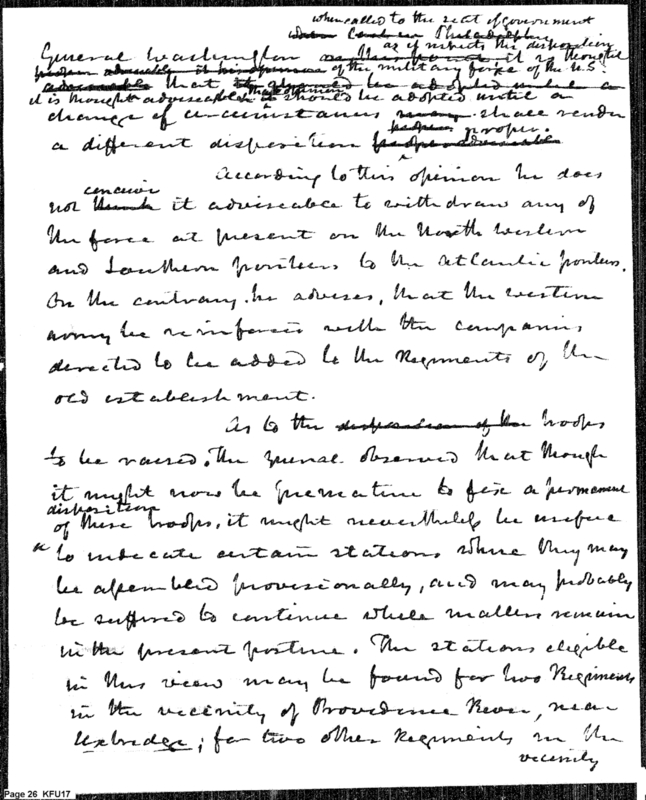 when called to the seat of government
when Philadelphia
as it respects the disposition
General Washington on this point it is thought
proper advisable of the military force of the U.S.
adviseable that be adopted until a
it is thought adviseable that should be adopted until a
change of circumstances may shall render
proper.
a different disposition proper adviseable
According to this opinion he does
conceive
not think it adviseable to withdraw any of
the force at present on the North Western
and Southern frontiers to the Atlantic frontiers.
On the contrary he advises, that the western
army be reinforced with the companies
directed to be added to the Regiments of the
old establishment.
As to the disposition of the troops
to be raised, the General observed that though
it might now be premature to fix a permanent
disposition
of these troops, it might nevertheless be useful
to indicate certain stations where they may
be assembled provisionally, and may probably
be suffered to continue while matters remain
in the present posture. The stations eligible
in this view may be found for two Regiments
in the vicinity of Providence River, near
Uxbridge; for two other Regiments in the
vicinity
Page 26 KFU17